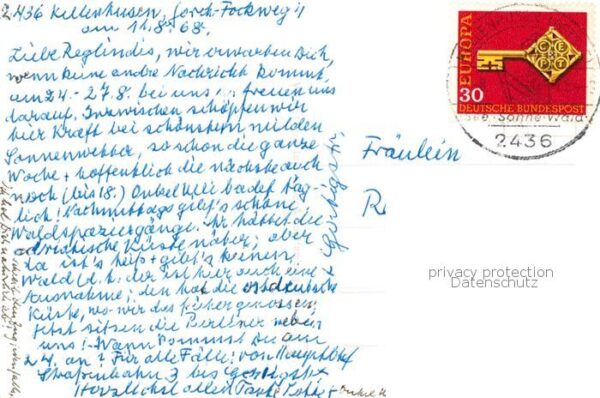 2436 Kellenhusen, Gorch-Fockweg 4
am 11.8.68.
Liebe Reglindis, wir erwarten Dich,
wenn keine andre Nachricht kommt,
am 24. - 27.8. bei uns u. freuen uns
darauf. Inzwischen schöpfen wir
hier Kraft bei schönstem, milden
Sonnenwetter, so schon die ganze
Woche + hoffentlich die nächste auch
noch (bis 18.) Onkel badet täg-
lich! Nachmittags gibt's schöne
Waldspaziergänge. Ihr hättet die
adriatische Küste näher; aber
da ist's heiß + gibt's keinen
Wald (d.h. der ist hier auch eine
Ausnahme; den hat die ostdeutsche
Küste, wo wir das früher genossen.
Jetzt sitzen die Berliner neben
uns! - Wann kommst Du am
24. an? Für alle Fälle: von Hauptbhf
Straßenbahn 3 bis
Herzlichst allen Tante
EUROPA
CEPT
30
DEUTSCHE BUNDESPOST
See-Sonne-Wald
2436
Fräulein
R
privacy protection
Datenschutz